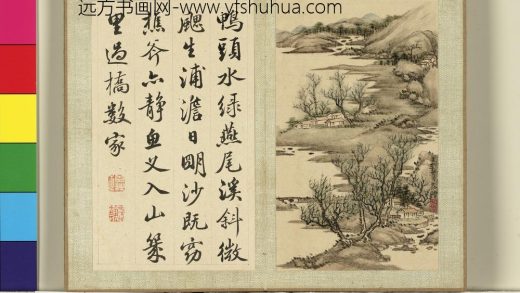 远方书画网-www.yfshuhua.com
鴨頭水綠燕尾溪斜微
颸生浦澹日明沙既窈
樵斧亦静魚叉入山幾
里過橋數家